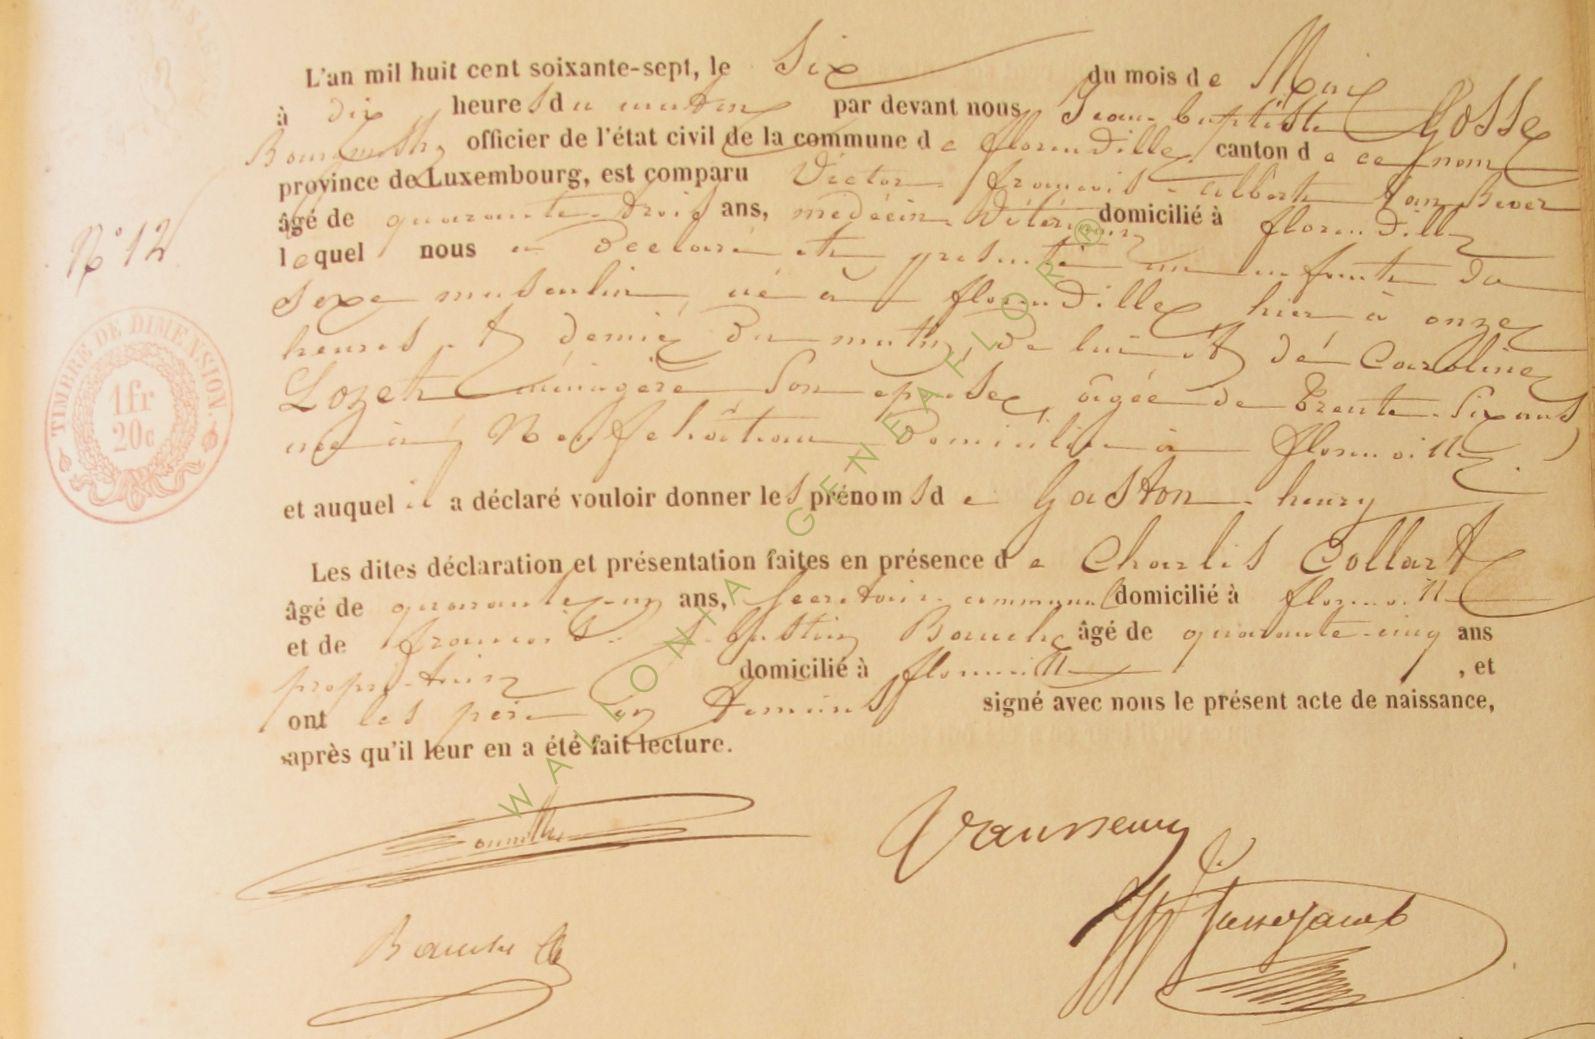 L'an mil huit cent soixante-sept, le Six du mois de Mai
à dix heures du matin par devant nous Jean baptiste Gosse
officier de l'état civil de la commune de florenville canton de ce nom
province de Luxembourg, est comparu Victor françois albert
âgé de quarante trois ans, médecin Vétérinaire domicilié à florenville
lequel nous a déclaré et présenté un enfant du
Sexe masculin, né à florenville hier à onze
heures et demie du matin, de lui et de Caroline
Lozet ménagère Son épouse, âgée de trente Six ans
née à Neufchâteau domiciliée à florenville
et auquel il a déclaré vouloir donner les prénoms de Gaston henry
Les dites déclaration et présentation faites en présence de Charles Collart
âgé de quarante-un ans, Secrétaire communal domicilié à florenville
et de françois Bauche âgé de quarante-cinq ans
propriétaire domicilié à florenville, et
ont les père et témoins signé avec nous le présent acte de naissance,
après qu'il leur en a été fait lecture.
N° 12
TIMBRE DE DIMENSION.
1fr
20c
WALLONIA GENEAFLOR©